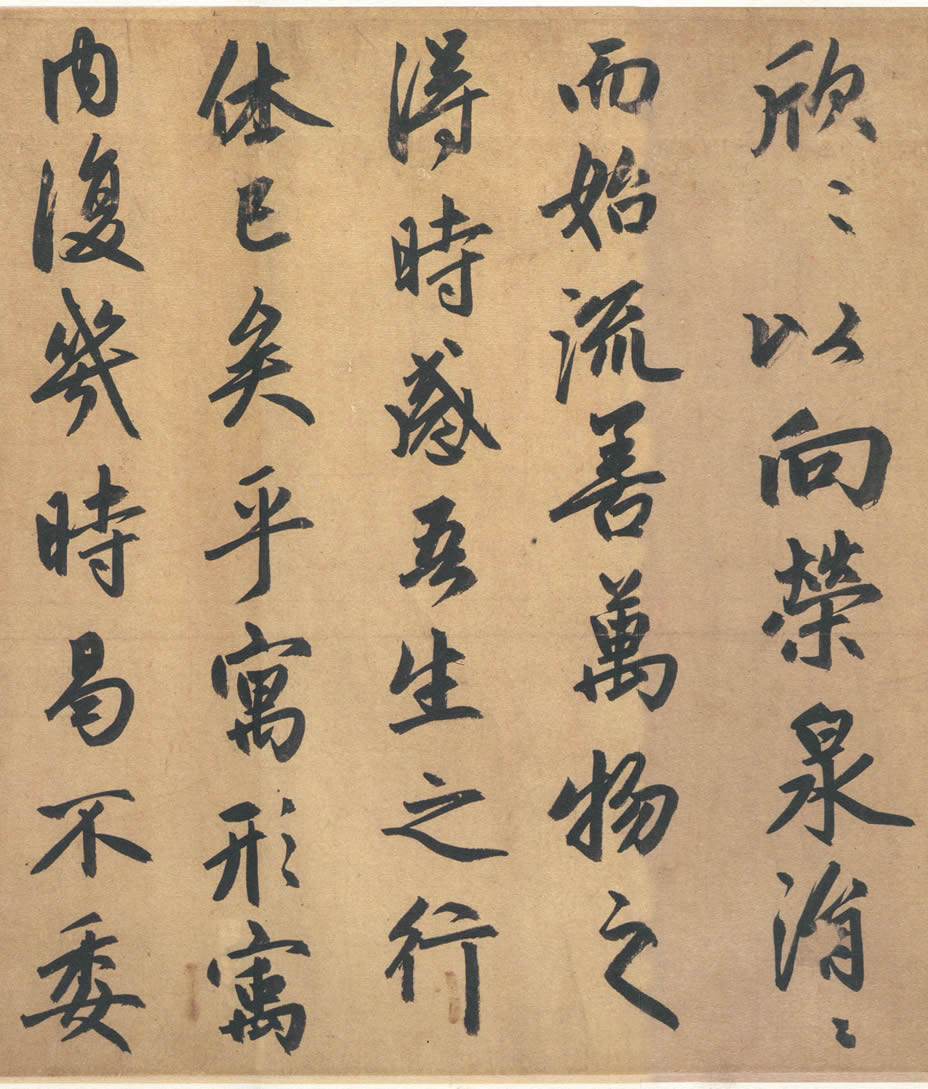 欣〻以向榮泉涓〻
而始流善萬物之
得時感吾生之行
休已矣乎寓形寓
内復幾時曷不委